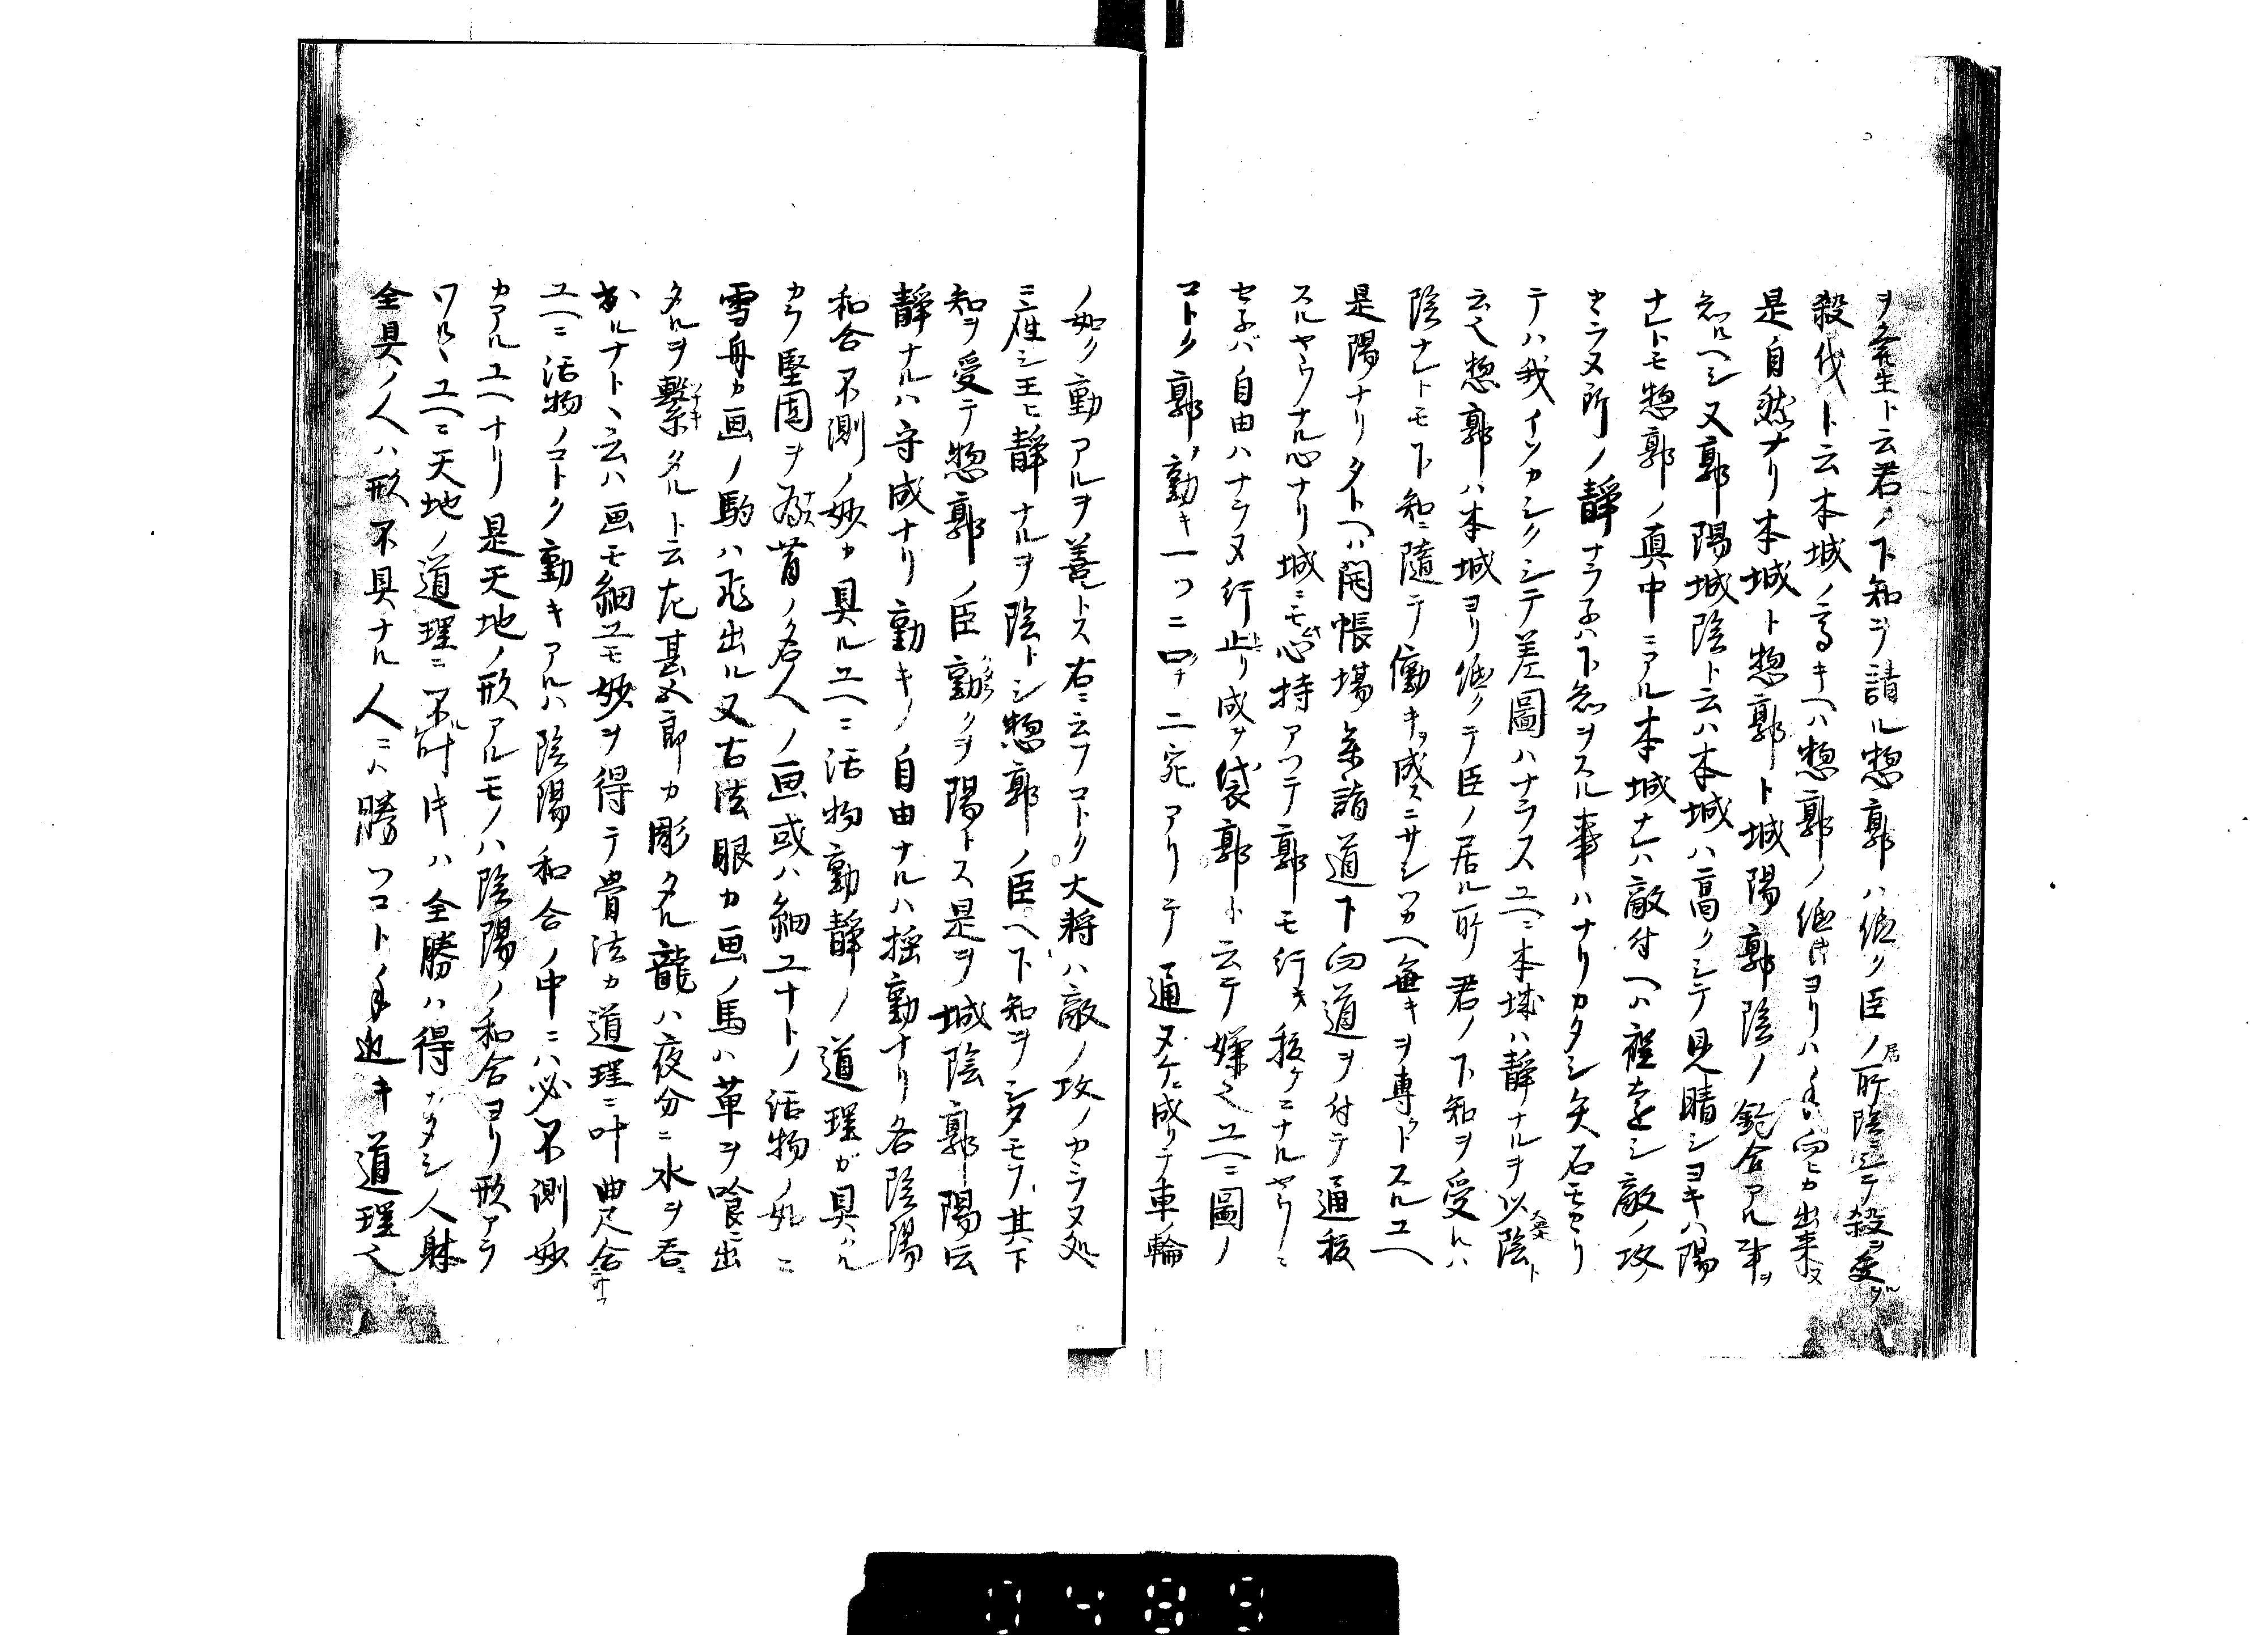 ヲ発生ト云君ノ下知ヲ請ル惣郭ハ低ク臣ノ居所陰ニテ殺ヲ受ルヲ
殺伐ト云本城ノ高キヘハ惣郭ノ低キヨリハ手向ヒカ出来ヌ
是自然ナリ本城ト惣郭ト城陽郭陰ノ釣合アル事ヲ
知ルヘシ又郭陽城陰ト云ハ本城ハ高クシテ見晴シヨキハ陽
ナレトモ惣郭ノ真中ニアル本城ナレハ敵付ヘハ程遠シ敵ノ攻
カラヌ所ノ静ナラ子ハ下知ヲスル事ハナリカタシ矢石モセリ
テハ我イソカシクシテ差圖ハナラスユヘニ本城ハ静ナルヲ以陰ト
云也惣郭ハ本城ヨリ低クテ臣ノ居ル所君ノ下知ヲ受レハ
陰ナレトモ下知ニ随テ働キヲ成スニサシツカヘ無キヲ専トスルユヘ
是陽ナリタトヘハ開帳場参詣道下向道ヲ付テ通抜
スルヤウナル心ナリ城ニモ此心持アツテ郭モ行キ抜ケニナルヤウニ
セ子バ自由ハナラヌ行止リ成ヲ袋郭ト云テ嫌也ユヘニ圖ノ
コトク郭ノ動キ一ツニ口十二宛アリテ通ヌケニ成リテ車ノ輪
ノ如ク動アルヲ善トス右ニ云フコトク大将ハ敵ノ攻ノカラヌ処
ニ座シ玉ヒ静ナルヲ陰トシ惣郭ノ臣ヘ下知ヲシタモフ其下
知ヲ受テ惣郭ノ臣動クヲ陽トス是ヲ城陰郭陽ト云
静ナルハ守成ナリ動キノ自由ナルハ揺動ナリ各陰陽
和合不測ノ妙カ具ルユヘニ活物動静ノ道理ガ具ハル
カラ堅固ヲ為ス昔ノ名人ノ画或ハ細工ナトノ活物ノ如ニ
雪舟カ画ノ駒ハ飛出ル又古法眼カ画ノ馬ハ草ヲ喰ニ出
タルヲ繋キタルト云左甚五郎カ彫タル龍ハ夜分ニ水ヲ呑ニ
出ルナトヽ云ハ画モ細工モ妙ヲ得テ骨法カ道理ニ叶曲尺合ニ合フ
ユヘニ活物ノコトク動キアルハ陰陽和合ノ中ニハ必不測ノ妙
カアルユヘナリ是天地ノ形アルモノハ陰陽ノ和合ヨリ形アラ
ワルヽユヘニ天地ノ道理ニ不叶片ハ全勝ハ得カタシ人躰
全具ノ人ハ形不具ナル人ニハ勝ツコト手近キ道理也